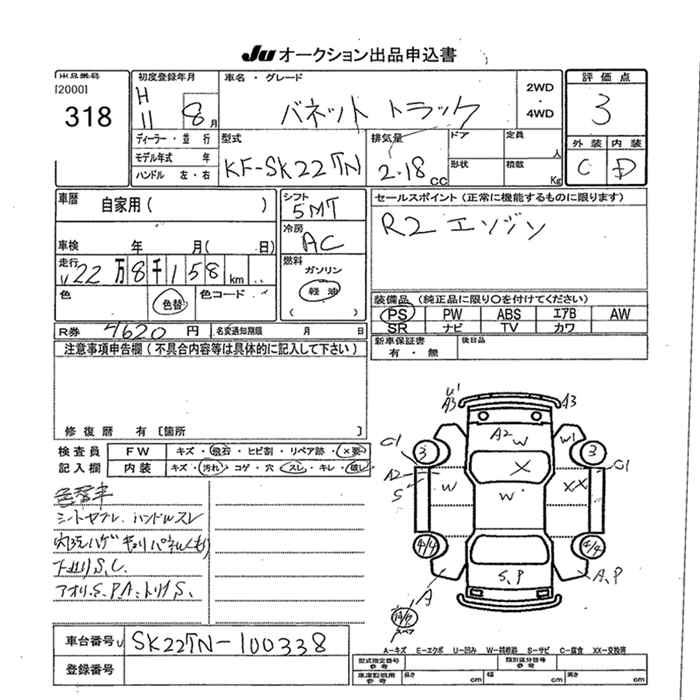 Ju オークション出品申込書
出品番号
[2000]
318
初度登録年月
H 11 8 月
ディーラー・並行
モデル年式 年
ハンドル 左・右
車名・グレード
バネット トラック
2WD
・
4WD
評価点
3
外装 内装
C D
型式
KF-SK22TN
排気量
2.18 CC
ドア
形状
定員
人
積載
Kg
車歴
自家用( )
車検 年 月( 日)
走行
22万8千158km
色
色替
色コード
R券 7620 円
名変通知期限 月 日
シフト
5MT
冷房
AC
燃料
ガソリン
軽油
( )
セールスポイント(正常に機能するものに限ります)
R2 エンジン
装備品(純正品に限り○を付けてください)
PS PW ABS エアB AW
SR ナビ TV カワ
新車保証書
有・無
後日品
注意事項申告欄(不具合内容等は具体的に記入して下さい)
修復歴 有〔箇所 〕
検査員
記入欄
FW キズ・飛石・ヒビ割・リペア跡・×要
内装 キズ・汚れ・コゲ・穴・スレ・キレ・破し
色替車
シートヤブレ.ハンドルスレ
下廻りS、C.
アオリ.S.P.A.トリイS.
U1
A3
A3
A2
W
W1
C1
3
3
C1
A2
S
W
X
W
XX
4/4
4/4
S、P
A
A、P
スペア
車台番号 SK22TN-100338
登録番号
A-キズ E-エクボ U-凹み W-補修跡 S-サビ C-腐食 XX-交換等
型式指定番号
参考
類別区分番号
参考
車庫証明用
参考
長さ cm 幅 cm 高さ cm